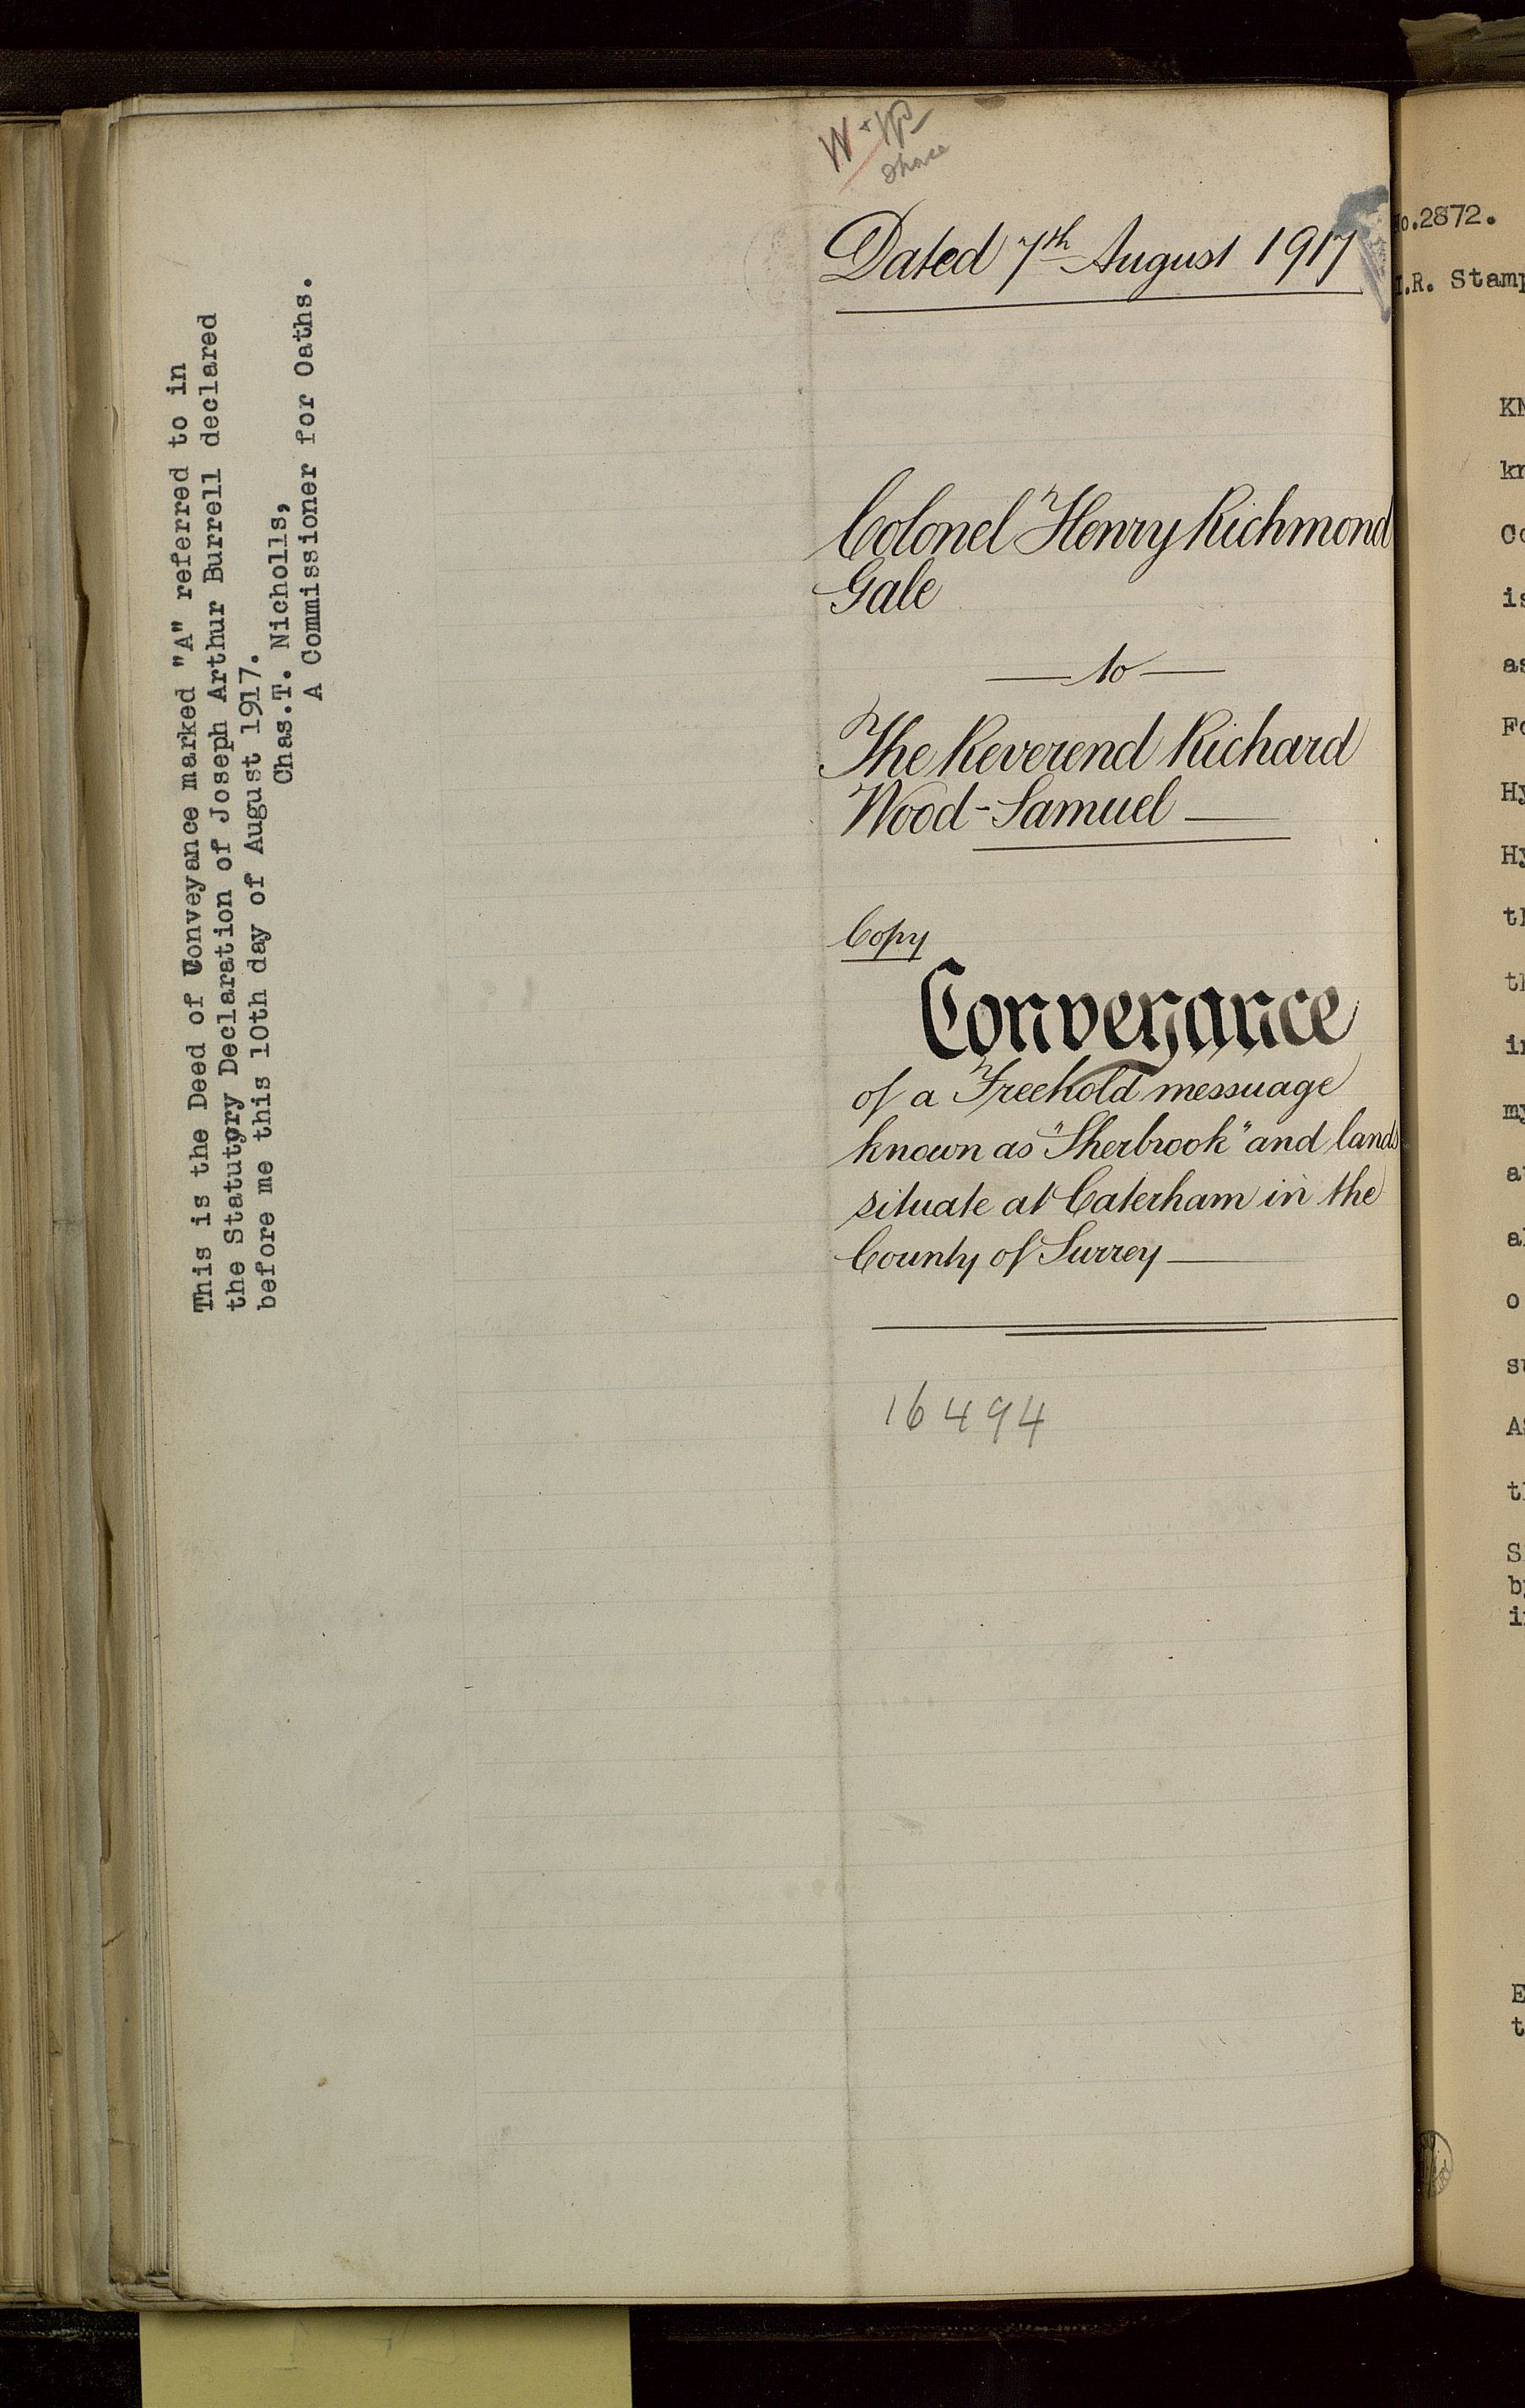 Dated 7th August 1917
Colonel Henry Richmond
Gale
to
The Reverend Richard
Wood-Samuel
Copy
Conveyance
of a Freehold messuage
known as "Sherbrook" and lands
situate at Caterham in the
County of Surrey
16494
This is the Deed of Conveyance marked "A" referred to in
the Statutory Declaration of Joseph Arthur Burrell declared
before me this 10th day of August 1917.
Chas.T. Nicholls,
A Commissioner for Oaths.
No.2872.
I.R. Stamp